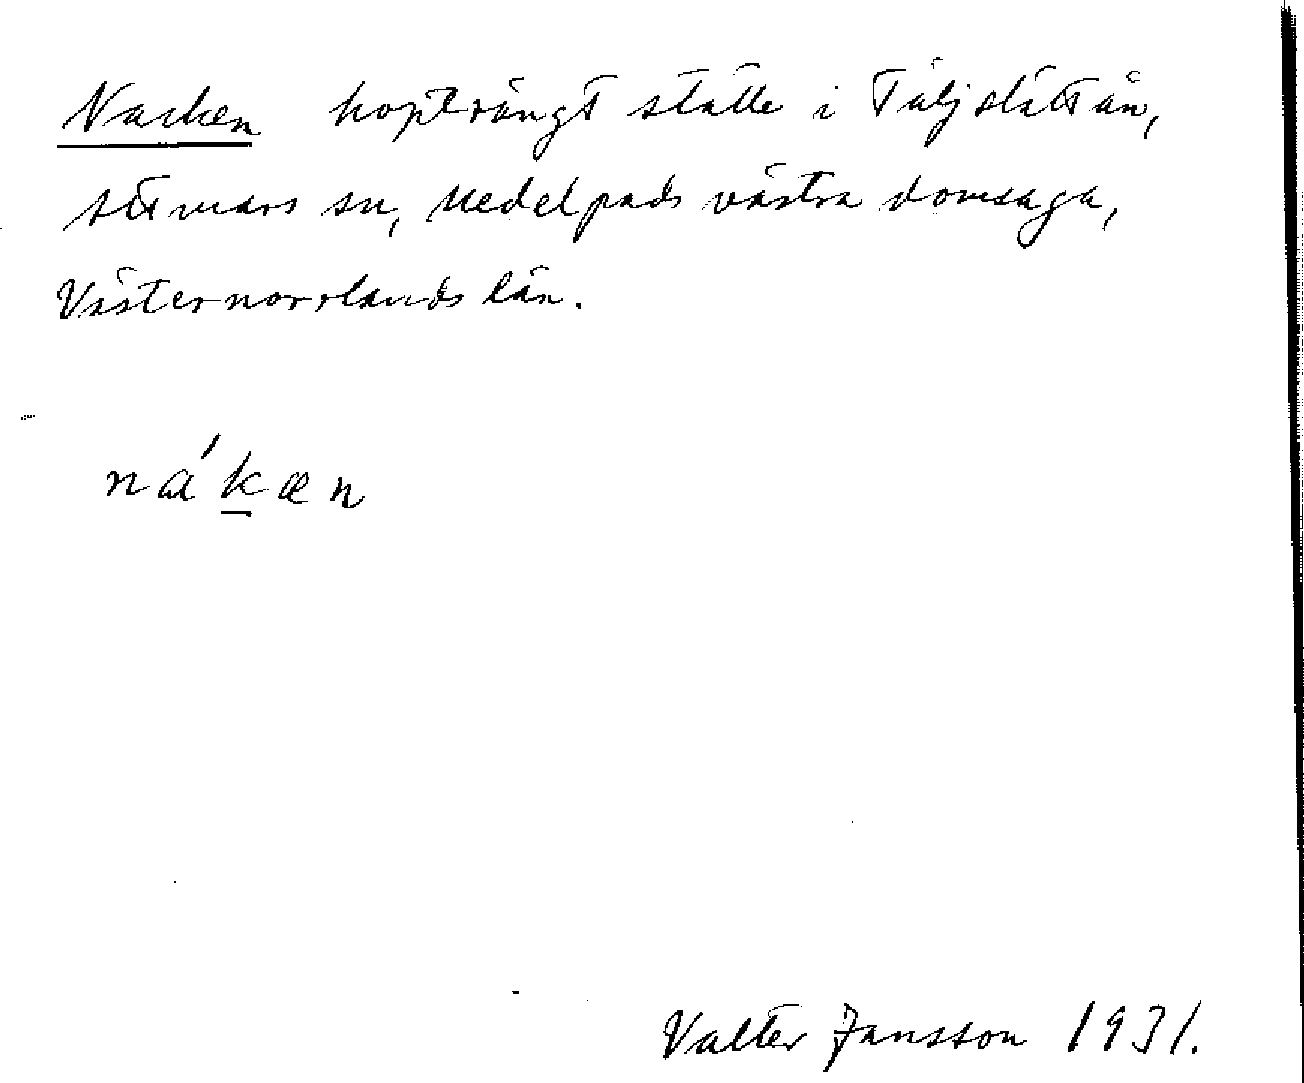 Nacken hopträngt ställe i Täljeslättån,
Attmars sn, Medelpads västra domsaga,
Västernorrlands län.
nákæn
Valter Jansson 1931.